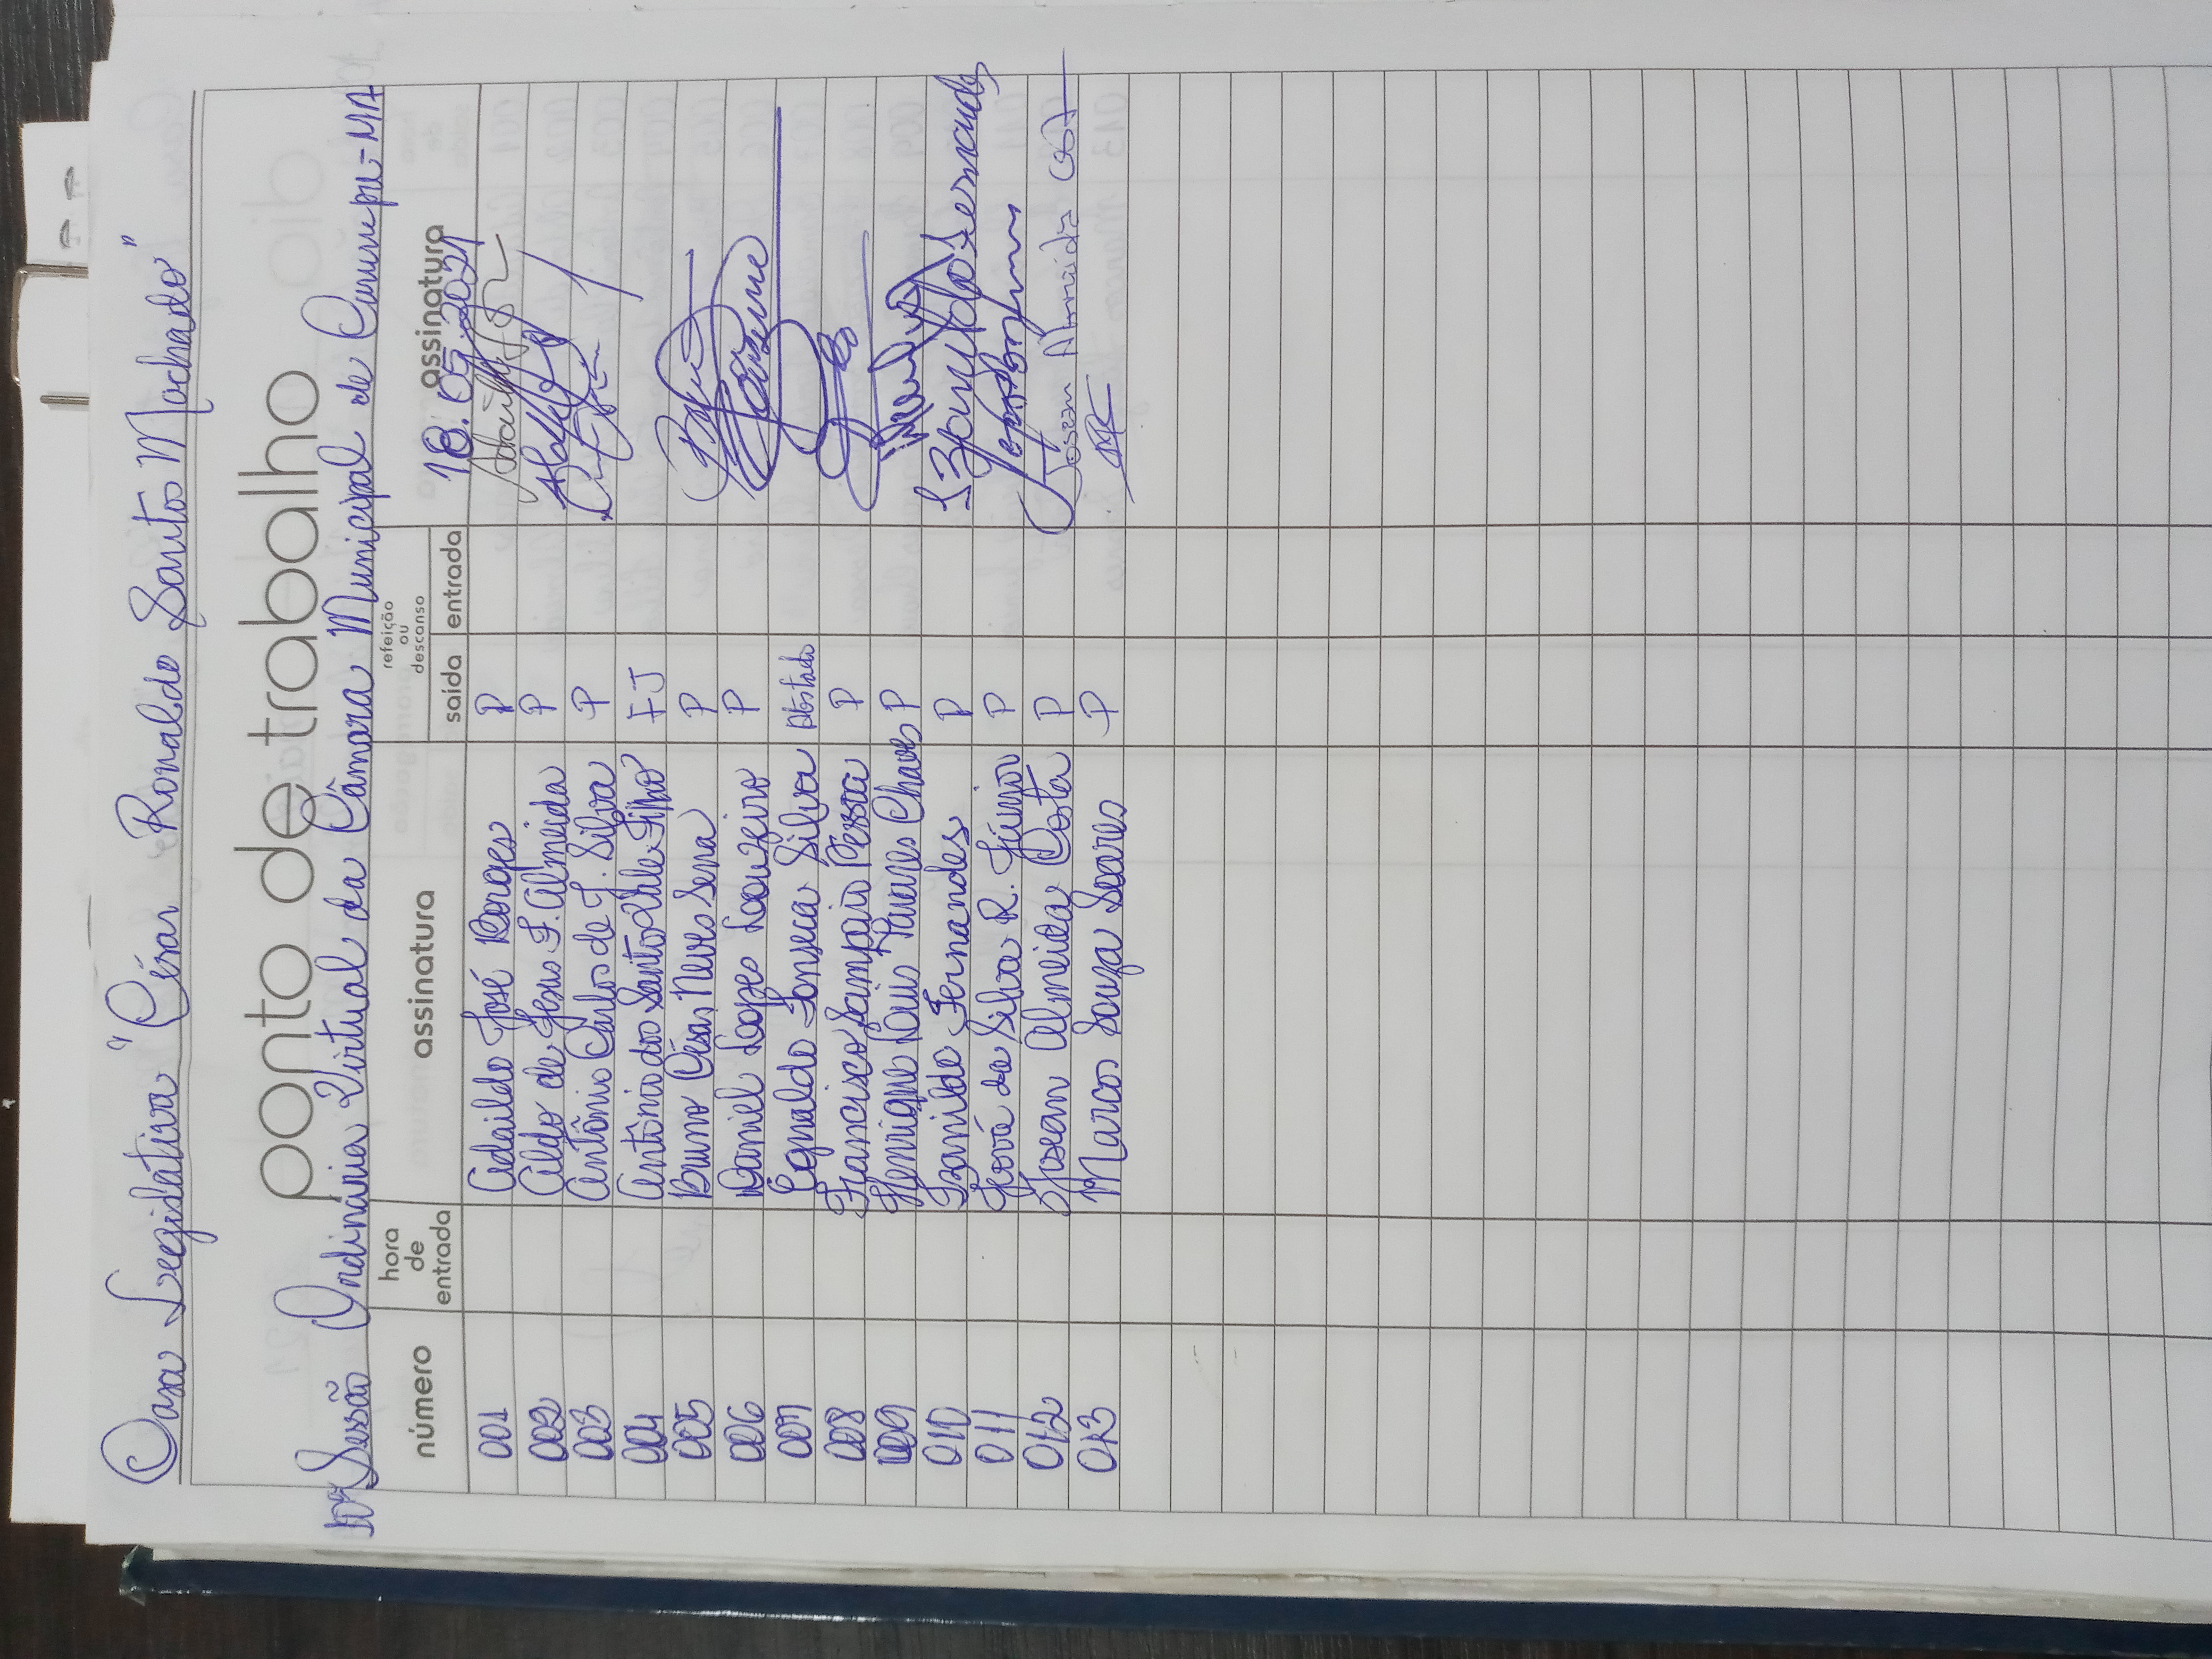 Casa Legislativa "César Ronaldo Santos Machado"
ponto de trabalho
10ª Sessão Ordinária Virtual da Câmara Municipal de Cururupu-MA
número hora de entrada assinatura refeição ou descanso saída entrada assinatura
18.05.2021
001 Adaildo José Borges P
002 Aldo de Jesus F. Almeida P
003 Antônio Carlos de J. Silva P
004 Antônio dos Santos Vale Filho FJ
005 Bruno César Neves Sena P
006 Daniel Lopes Louzeiro P
007 Egnaldo Fonseca Silva
008 Francisco Sampaio Pessoa P
009 Henrique Louis Tavares Chaves P
010 Izanildo Fernandes P Izanildo Fernandes
011 Jová da Silva R. Júnior P
012 Josean Almeida Costa P Josean Almeida Costa
013 Marcos Souza Soares P